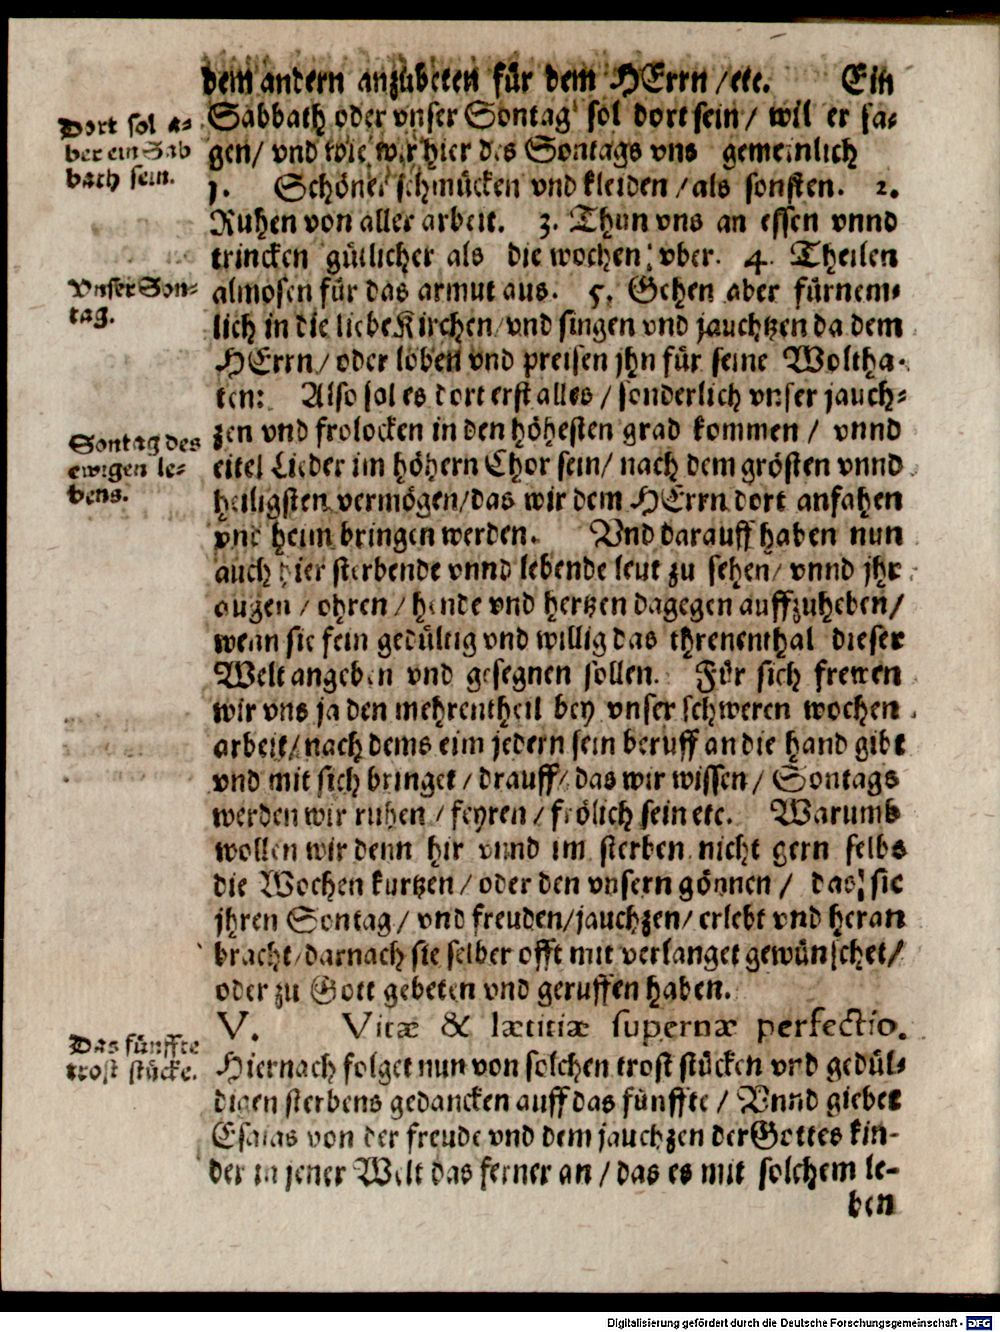 dem andern anzubeten für dem HErrn / etc. Ein
Dort sol a-
ber ein Sab
bath sein.
Sabbath oder vnser Sontag sol dort sein / wil er sa-
gen / vnd wie wir hier des Sontags vns gemeinlich
1. Schöner schmücken vnd kleiden / als sonsten. 2.
Ruhen von aller arbeit. 3. Thun vns an essen vnnd
trincken gütlicher als die wochen vber. 4. Theilen
Vnser Son-
tag.
almosen für das armut aus. 5. Gehen aber fürnem-
lich in die liebe Kirchen / vnd singen vnd jauchtzen da dem
HErrn / oder loben vnd preisen jhn für seine Woltha-
ten: Also sol es dort erst alles / sonderlich vnser jauch-
Sontag des
ewigen le-
bens.
zen vnd frolocken in den höhesten grad kommen / vnnd
eitel Lieder im höhern Chor sein / nach dem grösten vnnd
heiligsten vermögen / das wir dem HErrn dort anfahen
vnd heim bringen werden. Vnd darauff haben nun
auch hier sterbende vnnd lebende leut zu sehen / vnnd jhr
augen / ohren / hende vnd hertzen dagegen auffzuheben /
wenn sie fein gedültig vnd willig das threnenthal dieser
Welt angeben vnd gesegnen sollen. Für sich frewen
wir vns ja den mehrentheil bey vnser schweren wochen
arbeit / nach dems eim jedern sein beruff an die hand gibt
vnd mit sich bringet / drauff / das wir wissen / Sontags
werden wir ruhen / feyren / frölich sein etc. Warumb
wollen wir denn hir vnnd im sterben nicht gern selbs
die Wochen kurtzen / oder den vnsern gönnen / das sie
jhren Sontag / vnd freuden / jauchzen / erlebt vnd heran
bracht / darnach sie selber offt mit verlanget gewünschet /
oder zu Gott gebeten vnd geruffen haben.
V. Vitæ & lætitiæ supernæ perfectio.
Das fünffte
trost stücke.
Hiernach folget nun von solchen trost stücken vnd gedül-
digen sterbens gedancken auff das fünffte / Vnnd giebet
Esaias von der freude vnd dem jauchzen der Gottes kin-
der in jener Welt das ferner an / das es mit solchem le-
ben
Digitalisierung gefördert durch die Deutsche Forschungsgemeinschaft - DFG